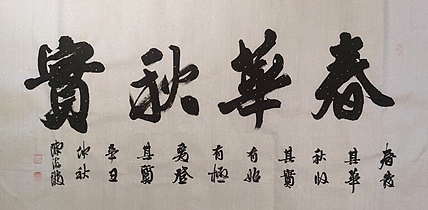 春華秋實
春發
其華
秋收
其實
有始
有極
爰登
其質
辛丑
仲秋